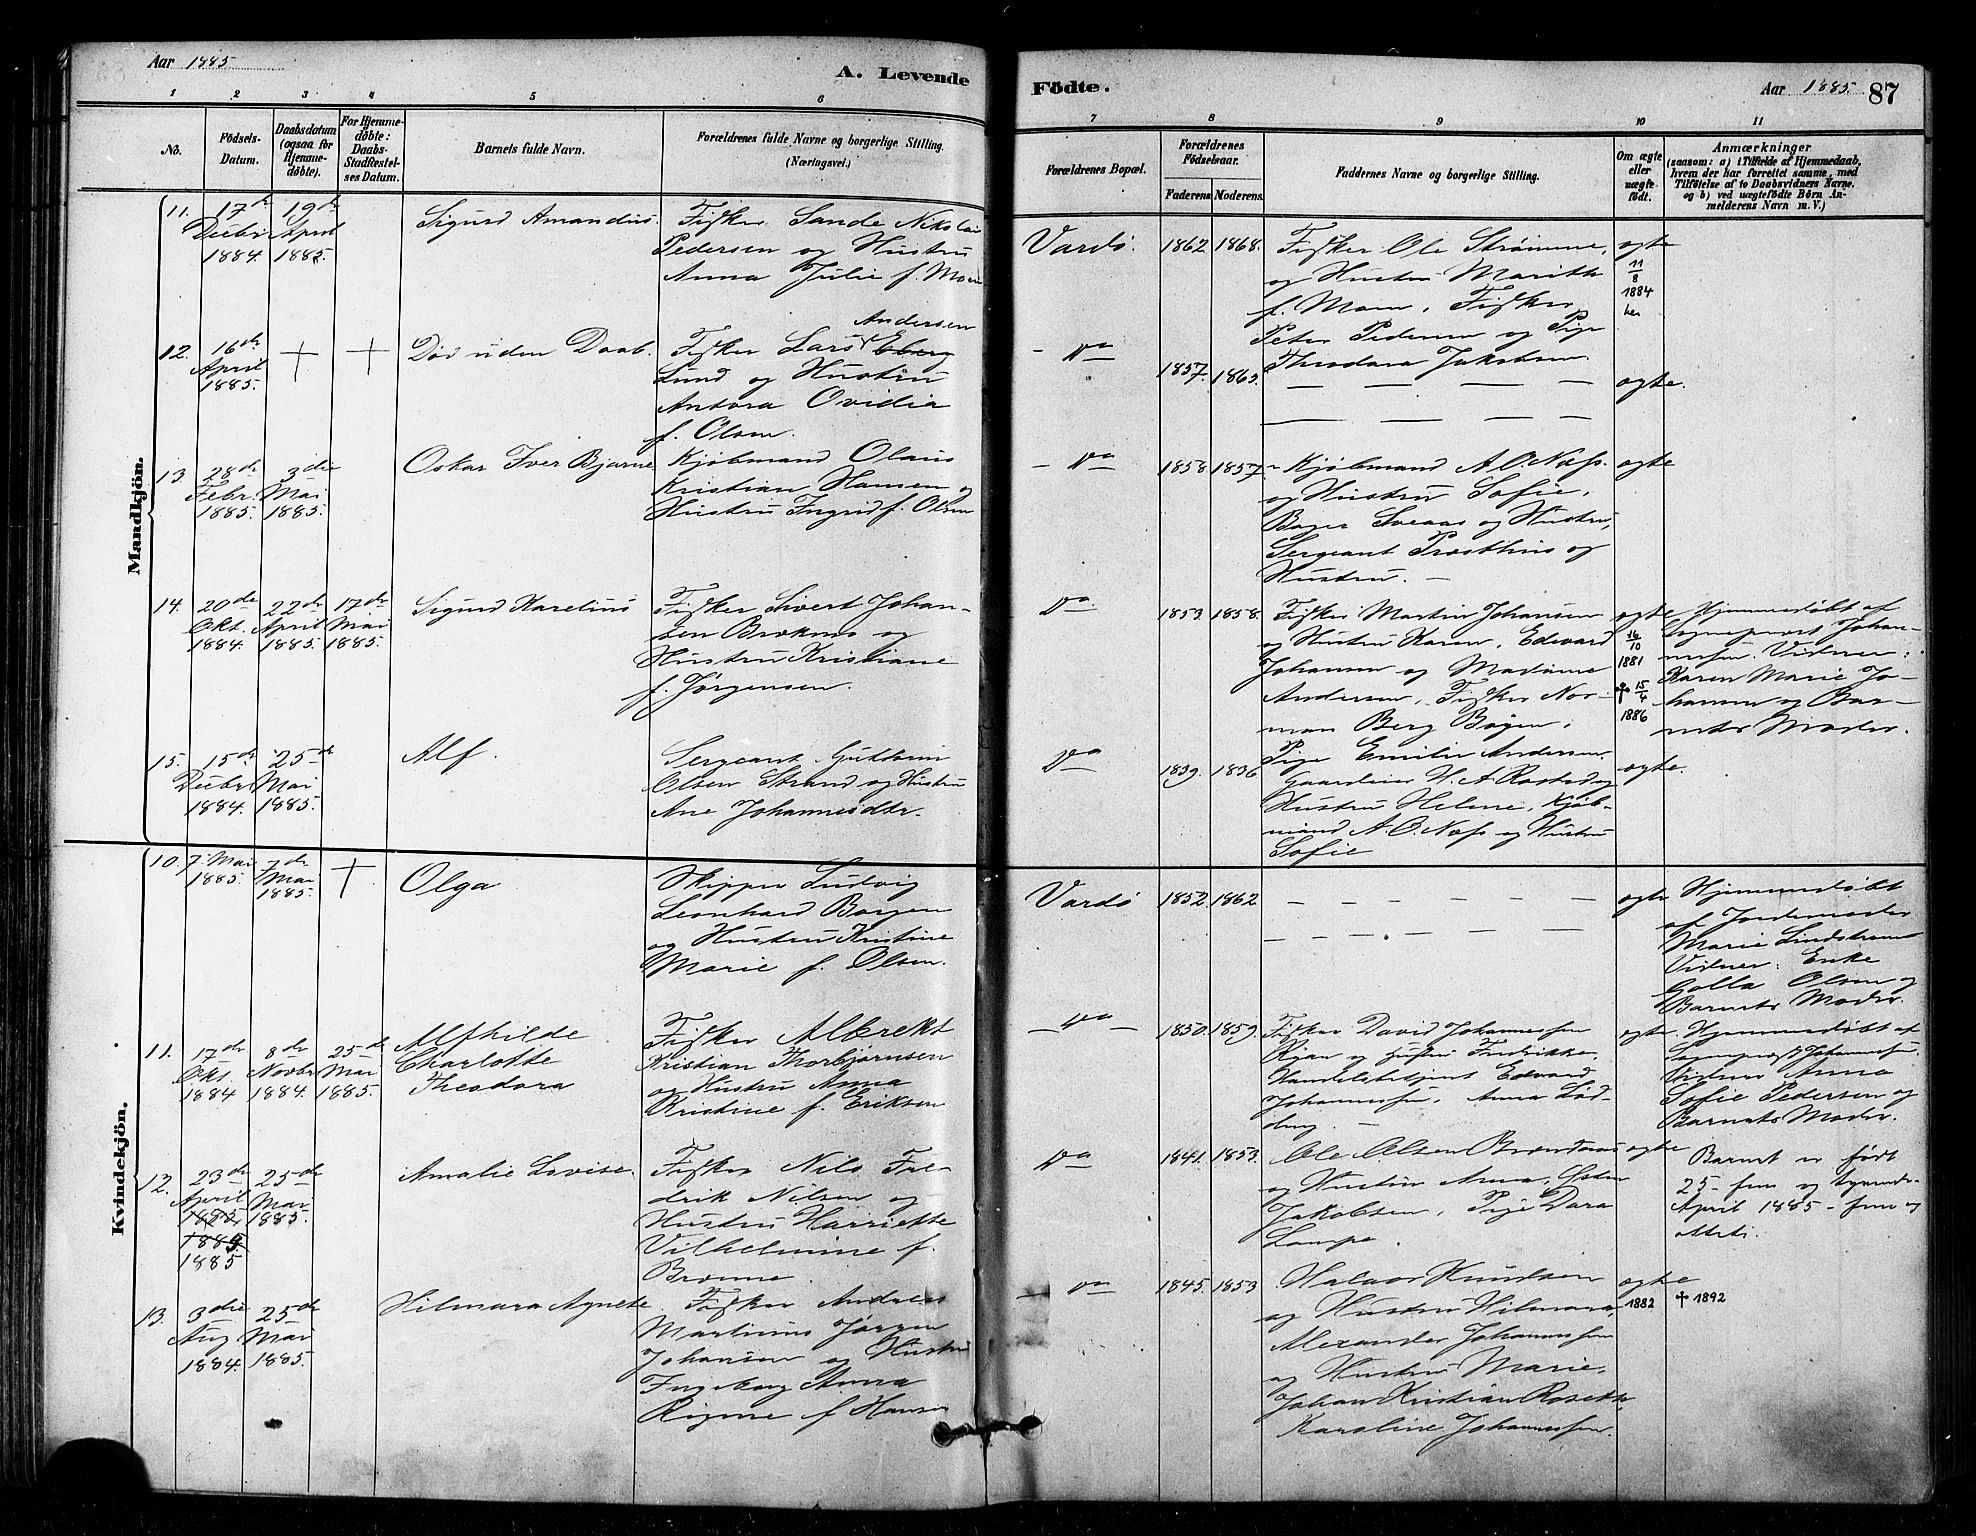 Aar 1885.
A. Levende
Födte.
Aar 1885.
87
1 2 3 4 5 6 7 8 9 10 11
No.
Födsels-
Datum.
Daabsdatum
(ogsaa for
Hjemme-
döbte).
For Hjemme-
döbte:
Daabs-
Stadfæstel-
ses Datum.
Barnets fulde Navn.
Forældrenes fulde Navne og borgerlige Stilling.
(Næringsvei.)
Forældrenes Bopæl.
Forældrenes
Födselsaar.
Faderens. Moderens.
Faddernes Navne og borgerlige Stilling.
Om ægte
eller
uægte
födt.
Anmærkninger
(saasom: a) i Tilfælde af Hjemmedaab,
hvem der har forrettet samme, med
Tilföielse af to Daabsvidners Navne,
og b) ved uægtefödte Börn An-
melderens Navn m. V.)
Mandkjön.
11.
17de
Decbr
1884.
19de
April
1885.
Sigurd Amandus.
Fisker Sande Nikolai
Pedersen og Hustru
Anna Julie f. Moen
Vardö.
1862 1868.
Fisker Ole Strømme,
og Hustru Marith
f. Moen, Fisker
Peter Pedersen og Pige
Theodora Jakobsen.
ægte
11/8
1884
her
12.
16de
April
1885.
+ +
Död uden Daab.
Andersen
Fisker Lars Eberg
Lund og Hustru
Antora Ovidia
f. Olsen.
- Do
1857. 1865.
— — — — —
— — — —
ægte.
13.
28de
Febr.
1885.
3die
Mai
1885.
Oskar Iver Bjarne
Kjöbmand Olaus
Kristian Hansen og
Hustru Ingrid f. Olsen
- Do
1858 1857.
Kjöbmand A. O. Næss.
og Hustru Sofie,
Bager Sveaas og Hustru,
Sergeant Præsthus og
Hustru. —
ægte
14.
20de
Okt.
1884.
22de
April
1885.
17de
Mai
1885.
Sigurd Karelius
Fisker Sivert Johan-
sen Broknes og
Hustru Kristiane
f. Jørgensen.
Do.
1853. 1858.
Fisker Martin Johansen
og Hustru Karen, Edvard
Johansen og Madame
Andersen, Fisker Nor-
man Berg Bøgen,
Pige Emilie Andersen.
ægte
16/10
1881
† 15/4
1886
Hjemmedöbt af
Sognepræst Johan-
nessen. Vidner:
Karen Marie Jo-
hansen og Bar-
nets Moder.
15.
15de
Decbr
1884.
25de
Mai
1885.
Alf.
Sergeant Guttorm
Olsen Strand og Hustru
Ane Johannesdtr.
Do
1839. 1836
Gaardeier H. A. Rostad og
Hustru Helene, Kjöb-
mand A. O. Næss og Hustru
Sofie
ægte.
Kvindekjön.
10.
7. Mai
1885.
7de
Mai
1885.
+
Olga
Skipper Ludvig
Leonhard Borgen
og Hustru Kristine
Marie f. Olsen.
Vardö
1852. 1862
— — — — — —
— — — — — —
ægte
Hjemmedöbt
af Jordemoder
Marie Lindstrøm
Vidner: Enke
Golla Olsen og
Barnets Moder.
11.
17de
Okt.
1884
8de
Novbr
1884.
25de
Mai
1885.
Alfhilde
Charlotte
Theodora
Fisker Albrekt
Kristian Thorbjørnsen
og Hustru Anna
Kristine f. Eriksen
— Do —
1850. 1859.
Fisker David Johannessen
Kjær og Hustru Fredrikke,
Handelsbetjent Edvard
Johannessen, Anna Lød-
—
ægte.
Hjemmedöbt af
Sognepræst Johannessen.
Vidner Anna
Sofie Pedersen og
Barnets Moder.
12.
23de
April
1885
1885.
1885
25de
Mai
1885.
Amalie Lovise.
Fisker Nils Fre-
drik Nilsen og
Hustru Harriette
Vilhelmine f.
Brønne.
Do
1841. 1853.
Ole Olsen Brændaas
og Hustru Anna, Østen
Jakobsen, Pige Dora
Lampe.
ægte
Barnet er född
25 - fem og tyvende
April 1885 - fem og
otteti.
13.
3die
Aug
1884.
25de
Mai
1885.
Hilmara Agnete
Fisker Andreas
Martinus Jørgen
Johansen og Hustru
Ingeborg Anna
Rigine f. Hansen
- Do
1845. 1853
Halvor Knudsen
og Hustru Hilmara,
Alexander Johannessen
og Hustru Marie,
Johan Kristian Rosekk
Karoline Johannessen.
ægte
1882
† 1892